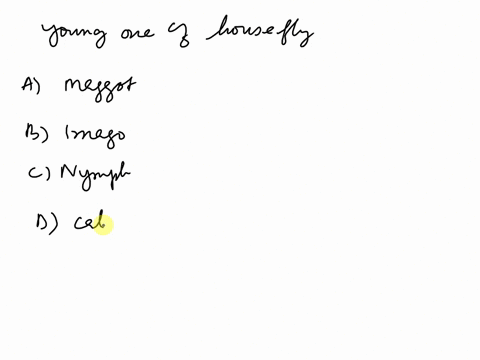 young one of housefly
A) Meggot
B) Imago
C) Nymph
D) cal